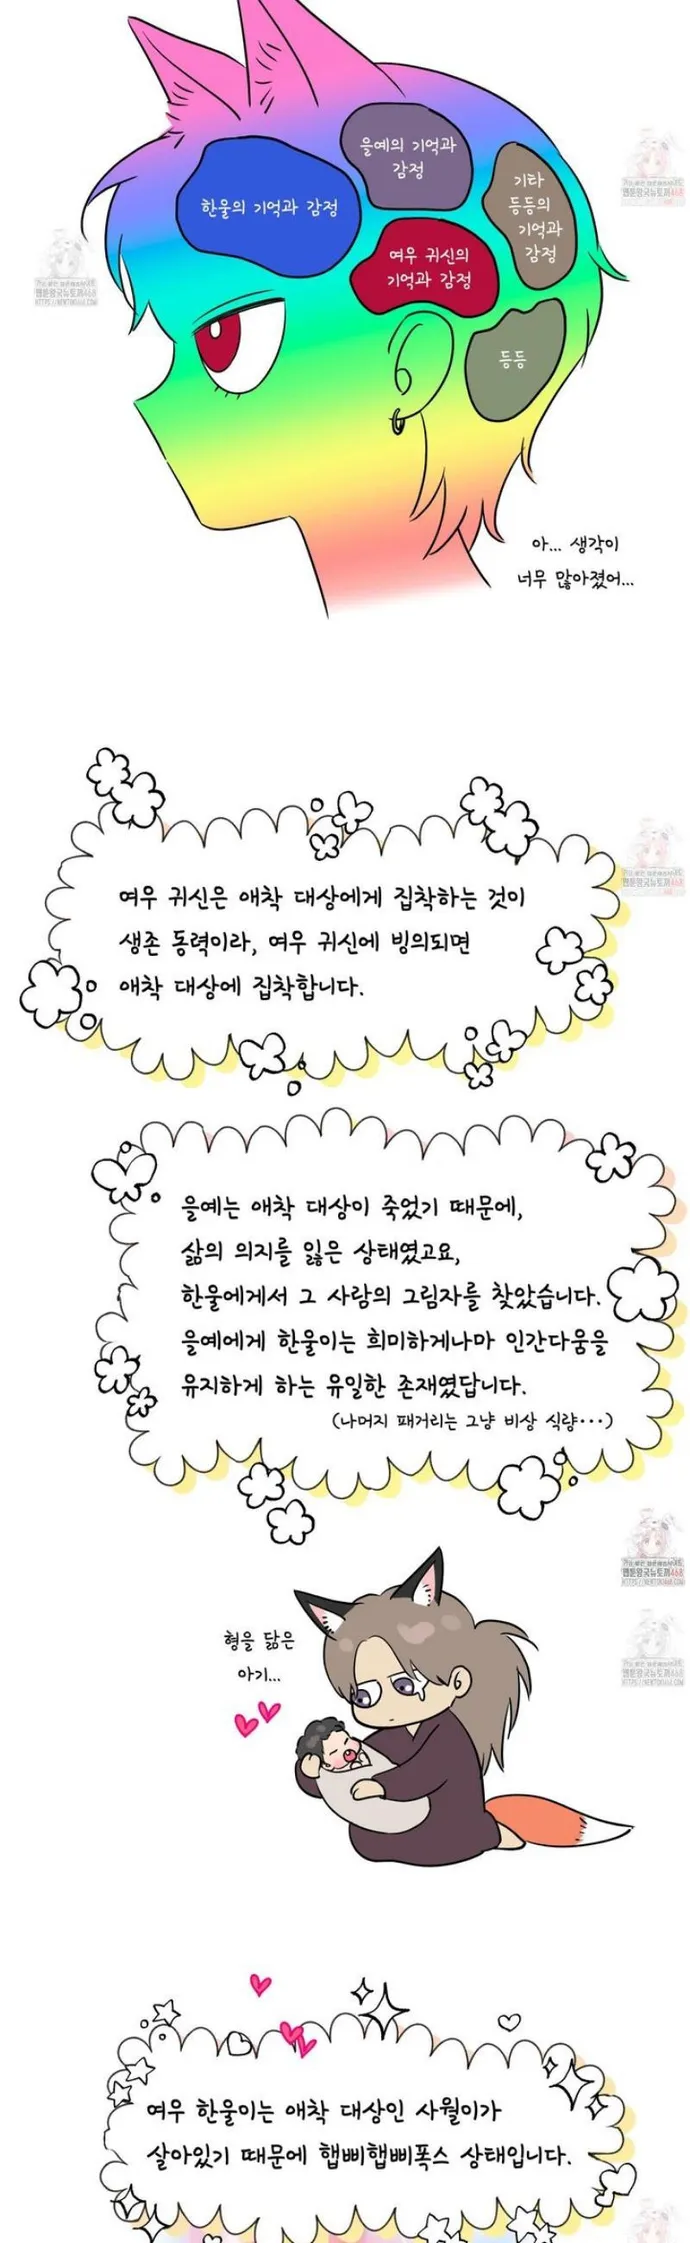 을예의 기억과
감정
한울의 기억과 감정
기타
등등의
기억과
감정
여우 귀신의
기억과 감정
등등
아... 생각이
너무 많아졌어...
여우 귀신은 애착 대상에게 집착하는 것이
생존 동력이라, 여우 귀신에 빙의되면
애착 대상에 집착합니다.
을예는 애착 대상이 죽었기 때문에,
삶의 의지를 잃은 상태였고요,
한울에게서 그 사람의 그림자를 찾았습니다.
을예에게 한울이는 희미하게나마 인간다움을
유지하게 하는 유일한 존재였답니다.
(나머지 패거리는 그냥 비상 식량···)
형을 닮은
아기...
여우 한울이는 애착 대상인 사월이가
살아있기 때문에 햅삐햅삐폭스 상태입니다.